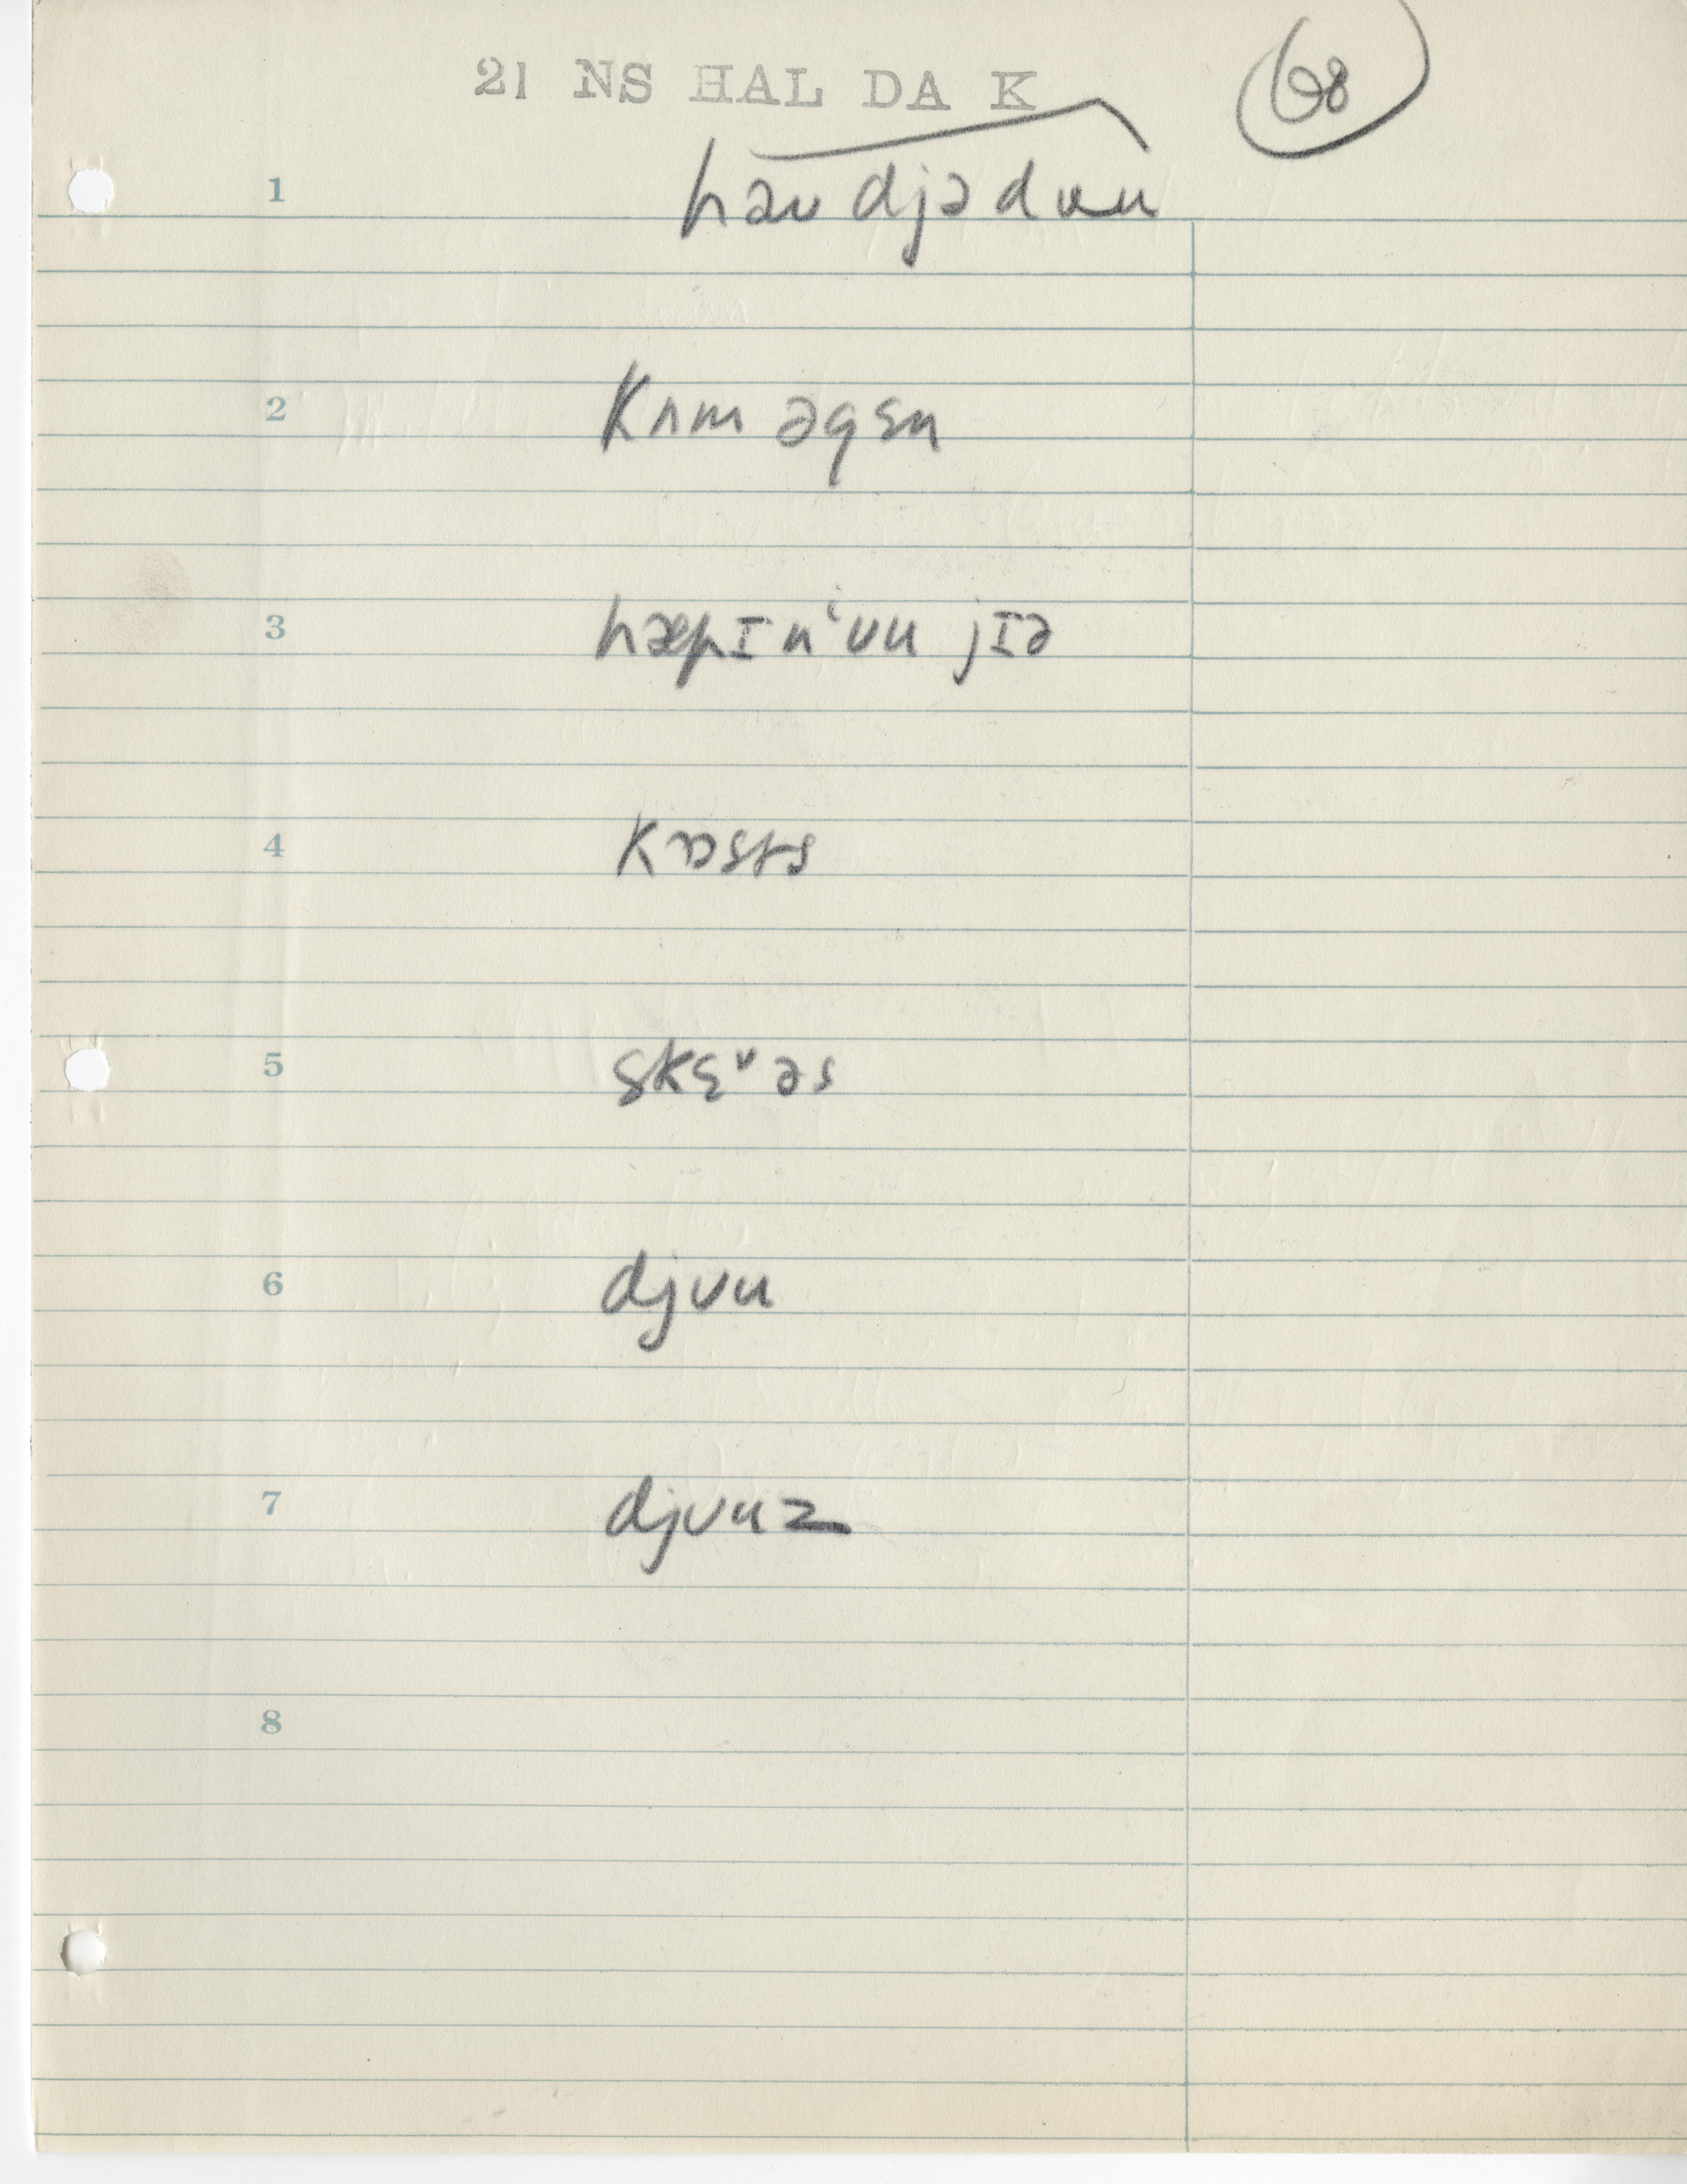 21 NS HAL DA K
68
1 haʊ djə du
2 kʌm əgɛn
3 hæpɪ nʹʊu jɪə
4 kɒsts
5 skɛᵛ əs
6 djʊu
7 djʊuz
8